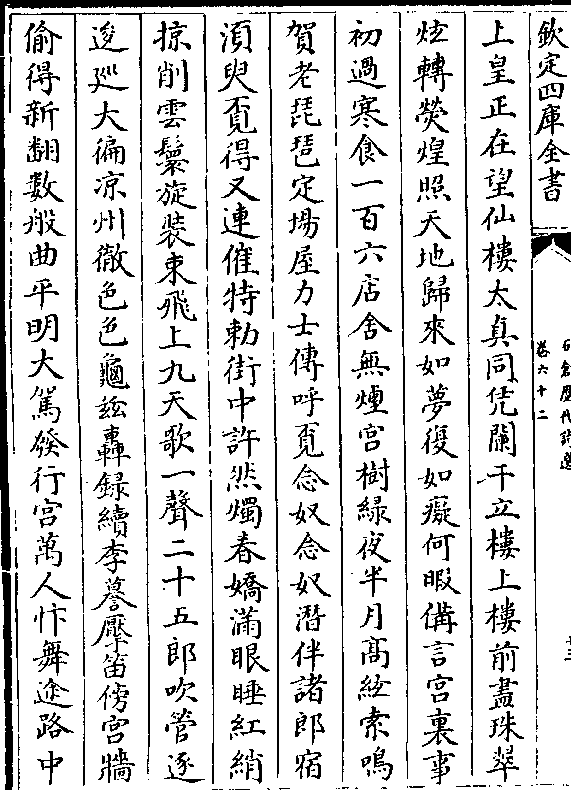 欽定四庫全書
石倉歷代詩選
卷六十二
十三
上皇正在望仙樓太真同凭闌干立樓上樓前盡珠翠
炫轉熒煌照天地歸來如夢復如癡何暇備言宫裏事
初過寒食一百六店舍無煙宫樹緑夜半月髙絃索鳴
賀老琵琶定場屋力士傳呼覓念奴念奴潛伴諸郎宿
湏臾覓得又連催特勅街中許然燭春嬌滿眼睡紅綃
掠削雲鬟旋裝束飛上九天歌一聲二十五郎吹管逐
逡廵大徧凉州徹色色龜兹轟録續李謩擪笛傍宫牆
偷得新翻數般曲平明大駕發行宫萬人忭舞途路中